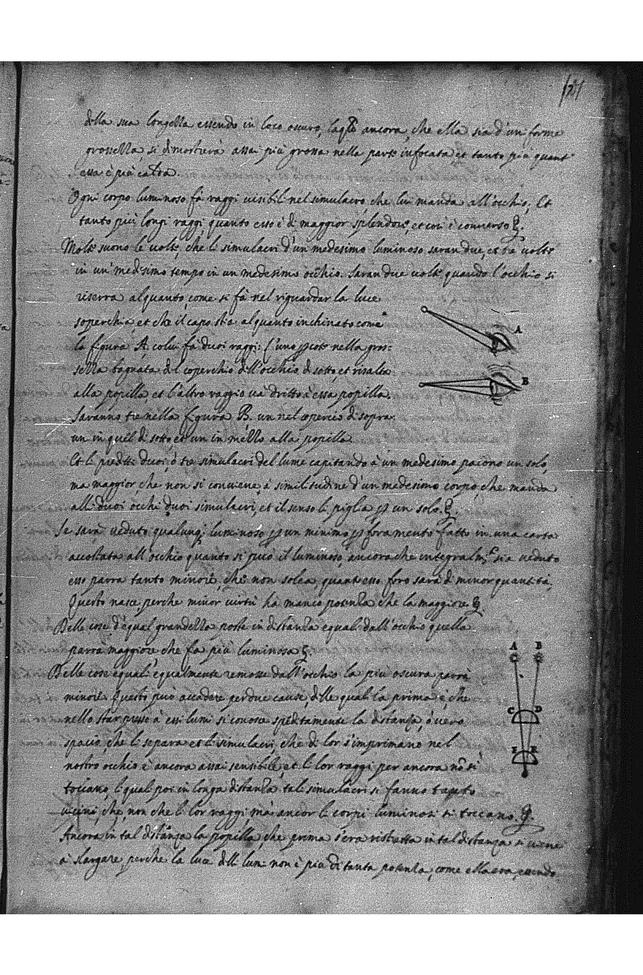 121
della sua longezza essendo in loco oscuro, la qle ancora che ella sia d'un forme
grossezza si dimostrerà assai più grossa nella parte infocata et tanto più quant'
essa è più
Ogni corpo luminoso fà raggi visibil nel simulacro che lui manda all'occhio, Et
tanto più longi raggi quanto esso è di maggior splendore, et così è converso
Molte suono le volte, che li simulacri d'un medesimo luminoso saran due, et tre volte
in un' medesimo tempo in un medesimo occhio. saran due volte quando l'occhio si
riserra alquanto, come si fà nel riguardar la luce
soperchia, et che il capo stia alquanto inchinato come
la figura A. colui fà duoi raggi: l'uno nella
bagnata del coperchio dell'occhio di sotto, et risalta
alla popilla et l'altro raggio và dritto à essa popilla
saranno tre nella figura B. un nel coperchio di sopra
un in quel di sotto et un in mezzo alla popilla
Et li predetti duoi, ò tre simulacri del lume capitando à un medesimo pacono un solo,
ma maggior che non si conviene à similitudine d'un medesimo corpo, che manda
alli duoi occhi duoi simulacri, et il senso li piglia p un solo.
Se sarà veduto qualunq luminoso p un minimo p foramento fatto in una carta
accostata all'occhio quanto si può il luminoso, ancora che integralm.te sia veduto
esso parra tanto minore, che non solea, quant'esso foro sarà di minor quantità,
Questo nasce perche minor virtù ha manco potenza che la maggiore
Delle cose d'equal grandezza poste in distanza equal dall'occhio quella
parrà maggiore che fà più luminosa
Delle cose equal equalmente remosse dall'occhio la più oscura parrà
minore. Questo può accadere per due cause, delle qual la prima è, che
nello star presso à essi lumi si conosce speditamente la distanza, ò vero
spacio, che li separa et li simulacri, che di lor s'imprimano nel
nostro occhio è ancora assai sensibile, et li lor raggi per ancora nō si
toccano, li qual poi in longa distanza tali simulacri si fanno tanto
vicini che, non che li lor raggi mà ancor li corpi luminosi si toccano.
Ancora in tal distanza la popilla, che prima s'era ristretta in tal distanza si viene
à slargare perche la luce delli lumi non è più di tanta potenza, come ella era, essendo
A
B
A B
C D
E